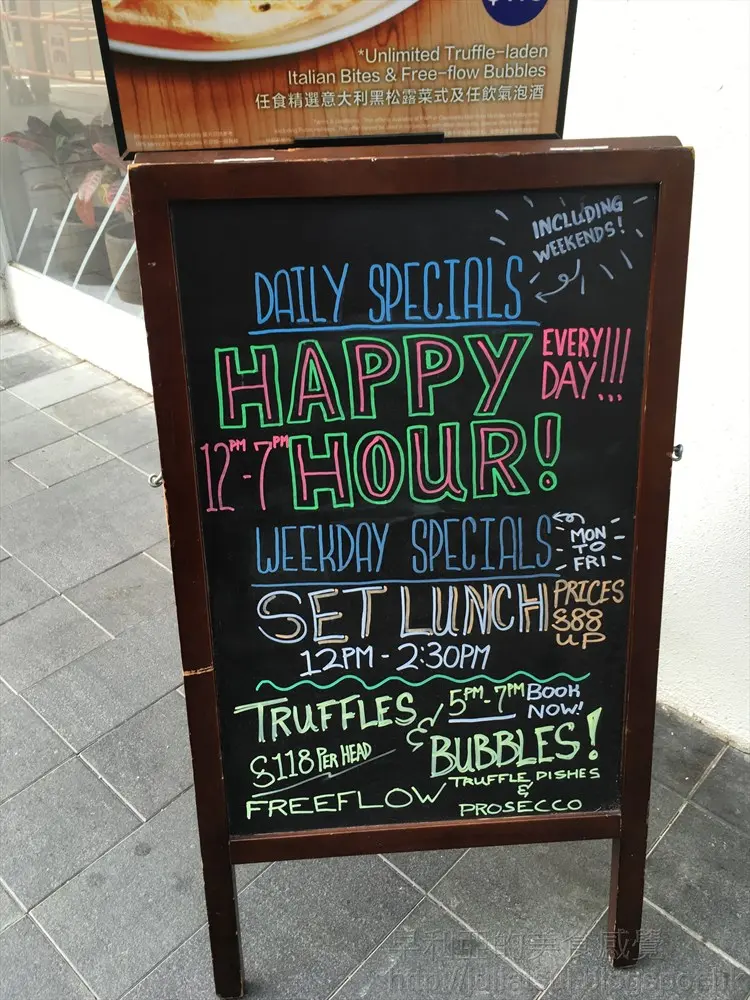 *Unlimited Truffle-laden
Italian Bites & Free-flow Bubbles
任食精選意大利黑松露菜式及任飲氣泡酒
INCLUDING
WEEKENDS!
DAILY SPECIALS
HAPPY
EVERY
DAY!!!
12PM-7PM
HOUR!
WEEKDAY SPECIALS
MON
TO
FRI
SET LUNCH
PRICES
$88
UP
12PM - 2:30PM
TRUFFLES
&
5PM-7PM
BOOK
NOW!
BUBBLES!
$118 PER HEAD
FREEFLOW
TRUFFLE DISHES
&
PROSECCO
的美食感覺